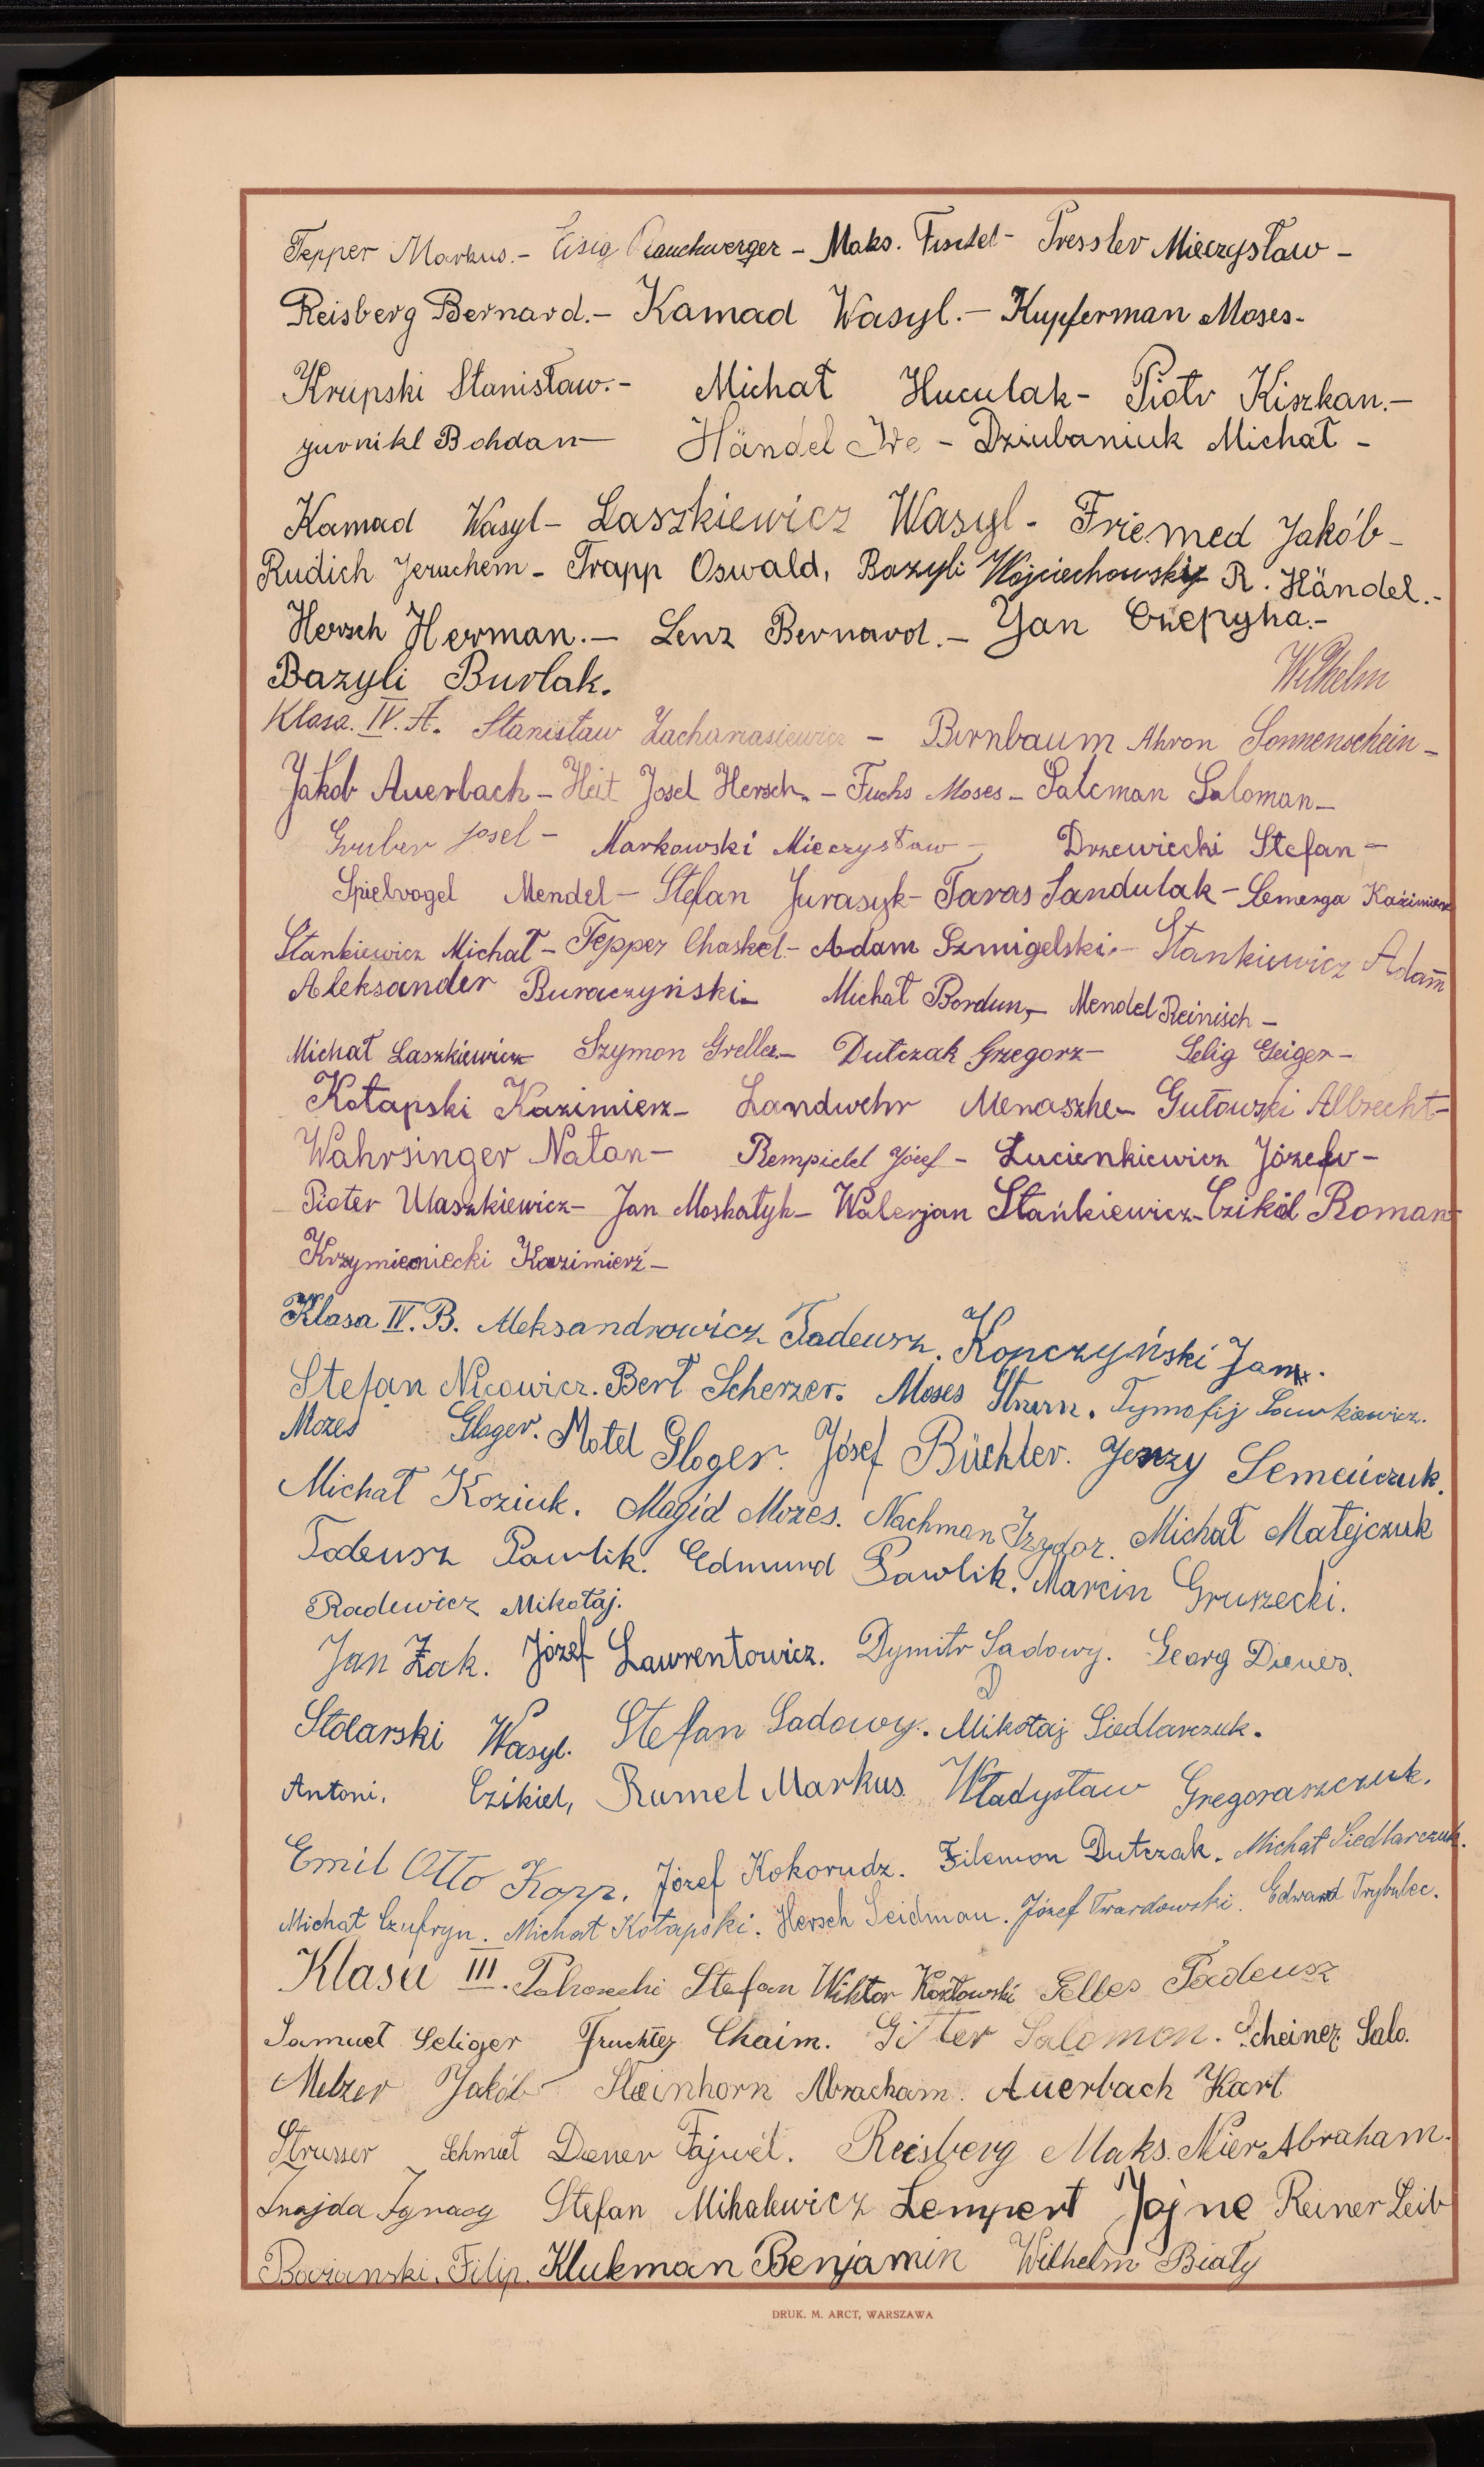 Tepper Markus. - Eisig Rauchwerger - Maks. Fischel - Pressler Mieczysław -
Reisberg Bernard. - Kamad Wasyl. - Kupferman Moses -
Krupski Stanisław. - Michał Huculak - Piotr Kiszkan. -
Bohdan - Händel - Dziubaniuk Michał -
Kamad Wasyl - Laszkiewicz Wasyl - Jakób -
Rudich Jeruchem - Trapp Oswald, Bazyli Wojciechowski R. Händel. -
Hersch Herman. - Lenz Bernard. - Jan -
Bazyli Burlak.
Wilhelm
Klasa. IV. A. Stanisław Zachariasiewicz - Birnbaum Ahron Sonnenschein -
Jakob Auerbach - Heit Josel Hersch. - Fuchs Moses - Salcman Saloman -
Gruber Josel - Markowski Mieczysław - Drzewiecki Stefan -
Spielvogel Mendel - Stefan Jurasyk - Taras Sandulak - Semerga Kazimierz
Stankiewicz Michał - Tepper Chaskel - Adam Szmigelski. - Stankiewicz Adam
Aleksander Buraczyński - Michał Bordun, - Mendel Reinisch -
Michał Laszkiewicz - Szymon Greller - Dutczak Grzegorz - Selig Geiger -
Kotapski Kazimierz - Landwehr Menaszhe - Gutowski Albrecht -
Wahrsinger Natan - Józef - Lucienkiewicz Józefw -
Pioter Ulaszkiewicz - Jan Moskałyk - Walerjan Stańkiewicz - Czikiel Roman -
Kazimierz -
Klasa IV. B. Aleksandrowicz Tadeusz. Kopczyński Jan.
Stefan Nicowicz. Bert Scherzer. Moses Sturm. Tymofij Lawkiewicz.
Mozes Gloger. Motel Gloger. Józef Büchler. Jerzy Semeńczuk.
Michał Koziuk. Magid Mozes. Nachman Izydor. Michał Matejczuk
Tadeusz Pawlik. Edmund Pawlik. Marcin Gruszecki.
Radewicz Mikołaj.
Jan Żak. Józef Lawrentowicz. Dymitr Sadowy. Georg Dienes.
Stolarski Wasyl. Stefan Sadowy. Mikołaj Siedlarczuk.
Antoni. Czikiel, Rumel Markus. Władysław Gregoraszczuk.
Emil Otto Kopp. Józef Kokorudz. Filemon Dutczak. Michał Siedlarczuk.
Michał Czufryn. Michał Kotapski. Hersch Seidman. Józef Twardowski. Edward Trybulec.
Klasa III. Stefan Wiktor Kozłowski Selles Tadeusz
Samuel Seliger Fruchter Chaim. Gitter Salomon. Scheiner Salo.
Melzer Jakób Steinhorn Abracham. Auerbach Kart
Strusser Schmel Diener Fajwel. Reisberg Maks. Nier Abraham.
Ignacy Stefan Mihalewicz Lempert Jojne Reiner Leib
Bażanski. Filip. Klukman Benjamin Wilhelm Biały
DRUK. M. ARCT, WARSZAWA